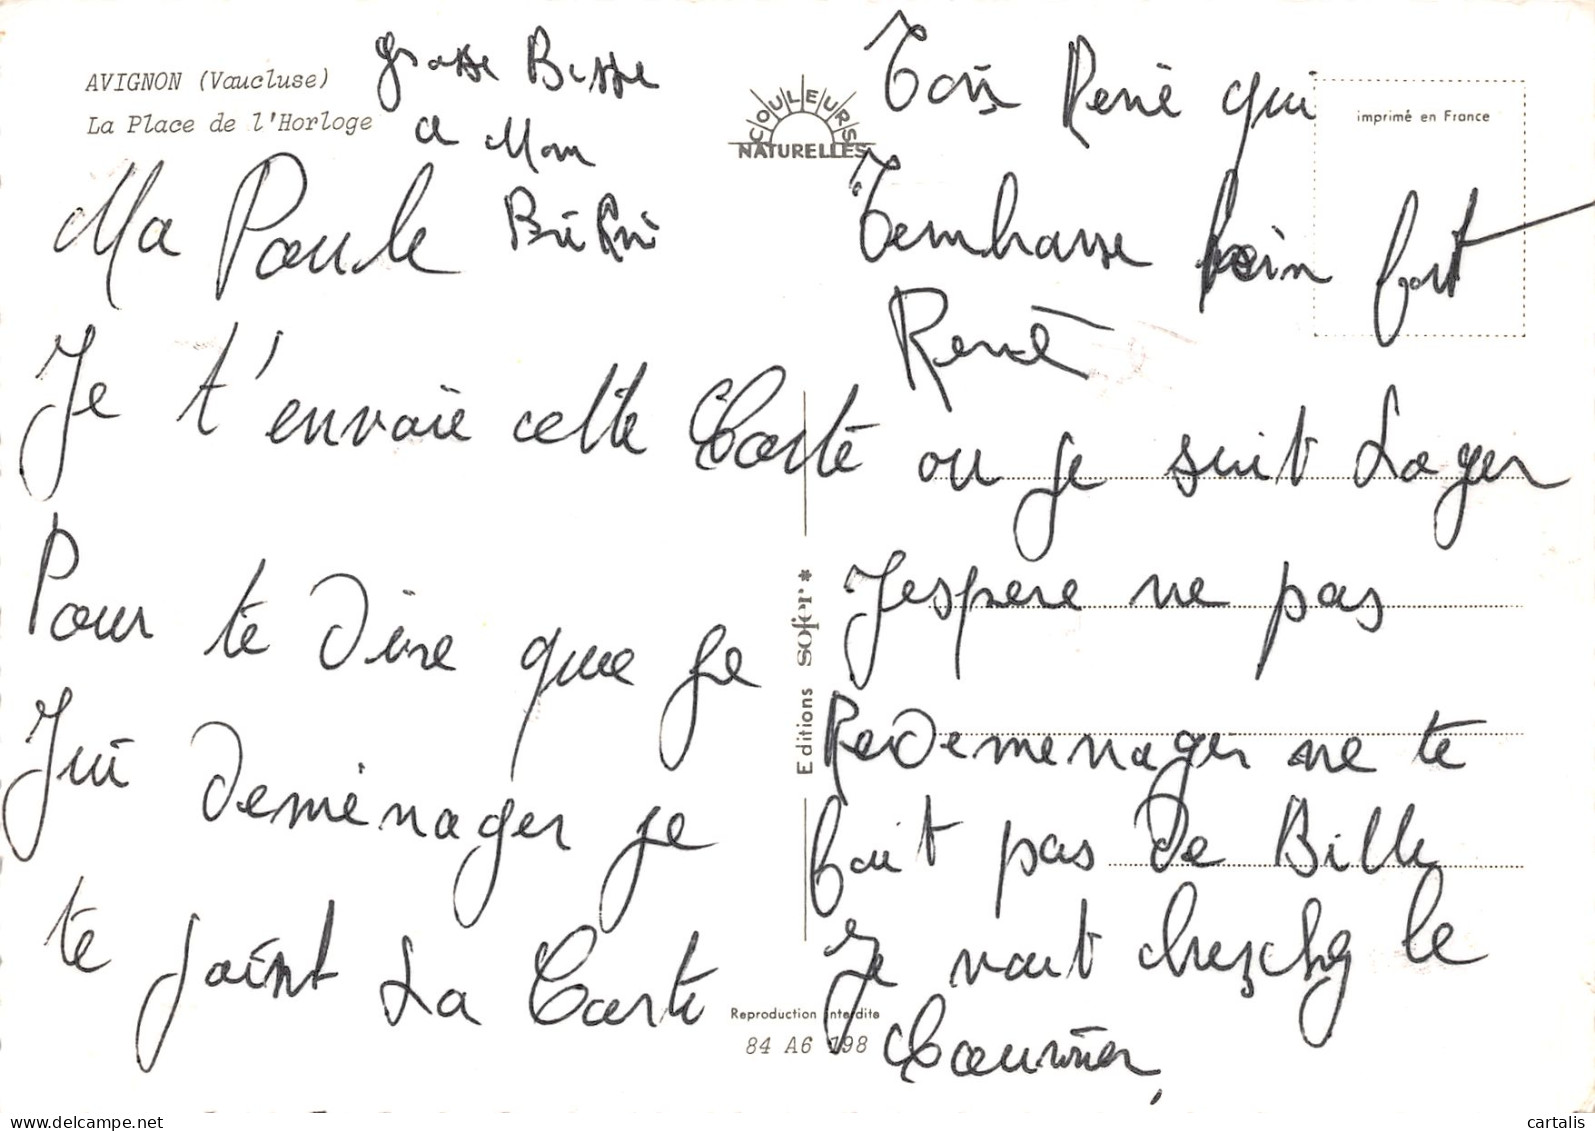 AVIGNON (Vaucluse)
La Place de l'Horloge
grosse Bisse
a Mon
Ma Poule
Je t'envoie cette Carte
Pour te Dire que je
Jui Deménager je
te joint La Carte
COULEURS
NATURELLES
imprimé en France
Ton René qui
t'embrasse bien fort
René
ou je suit Loger
J'espere ne pas
ReDemenager ne te
fait pas De Bille
Je vait cherchg le
Courrier,
Editions sofer*
Reproduction interdite
84 A6 198
cartalis
www.delcampe.net